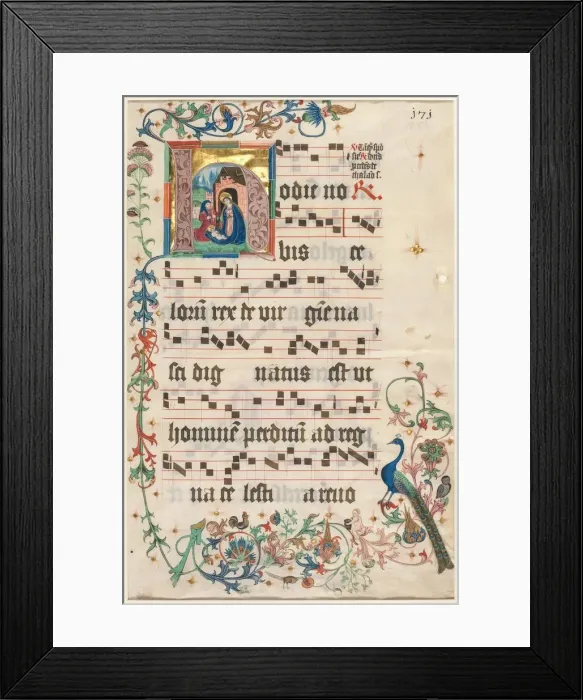 j7j
Hodie no R.
bis ce
lorū rex de vir gīe na
sci dig natus est ut
hominē perditū ad reg
na ce lesti a reuo